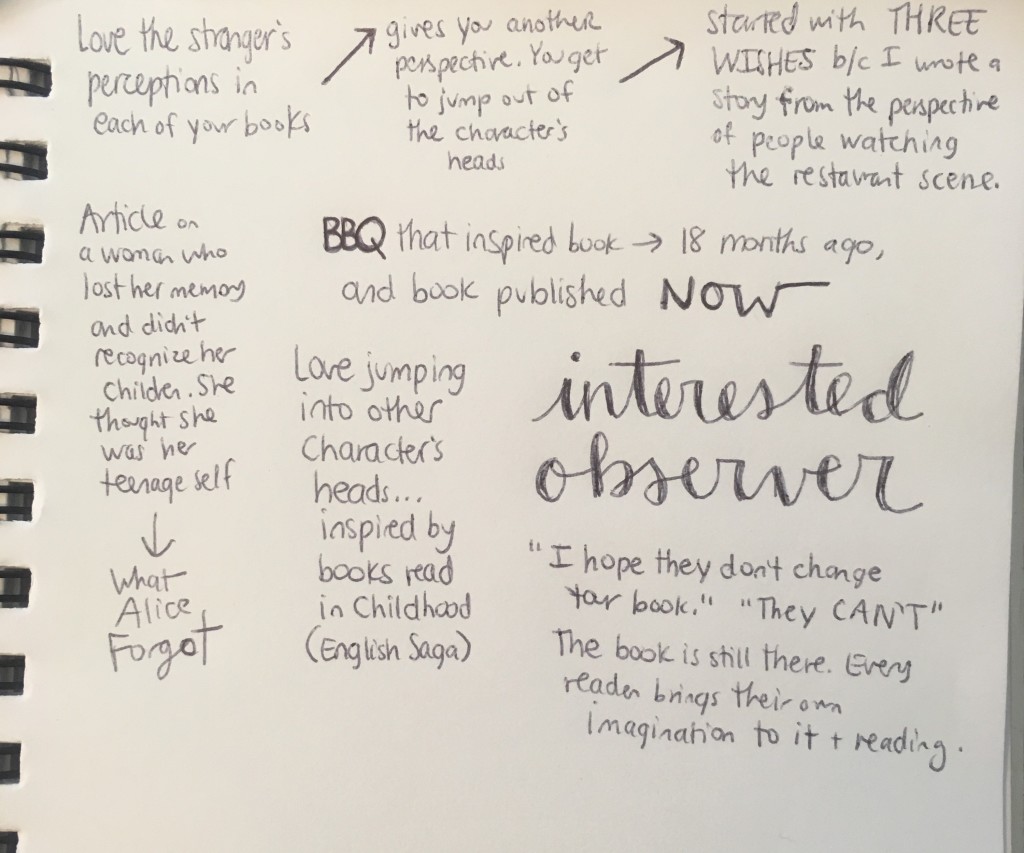 Love the stranger's
perceptions in
each of your books
gives you another
perspective. You get
to jump out of
the character's
heads
started with THREE
WISHES b/c I wrote a
story from the perspective
of people watching
the restaurant scene.
Article on
a woman who
lost her memory
and didn't
recognize her
children. She
thought she
was her
teenage self
What
Alice
Forgot
BBQ that inspired book → 18 months ago,
and book published NOW
Love jumping
into other
Character's
heads...
inspired by
books read
in Childhood
(English Saga)
interested
observer
"I hope they don't change
your book." "They CAN'T"
The book is still there. Every
reader brings their own
imagination to it + reading.